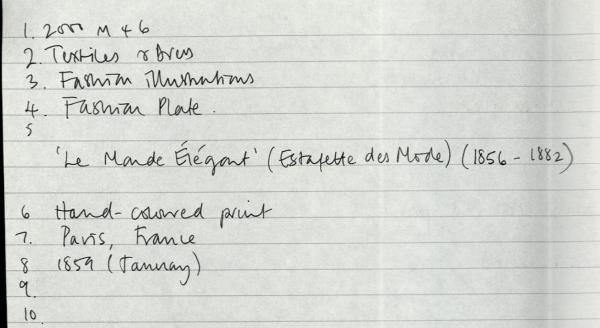 1. 2000 M + 6
2. Textiles & Dress
3. Fashion illustrations
4. Fashion Plate.
5
'Le Monde Élégant' (Estafette des Mode) (1856 - 1882)
6 Hand-coloured print
7. Paris, France
8 1859 (January)
9.
10.